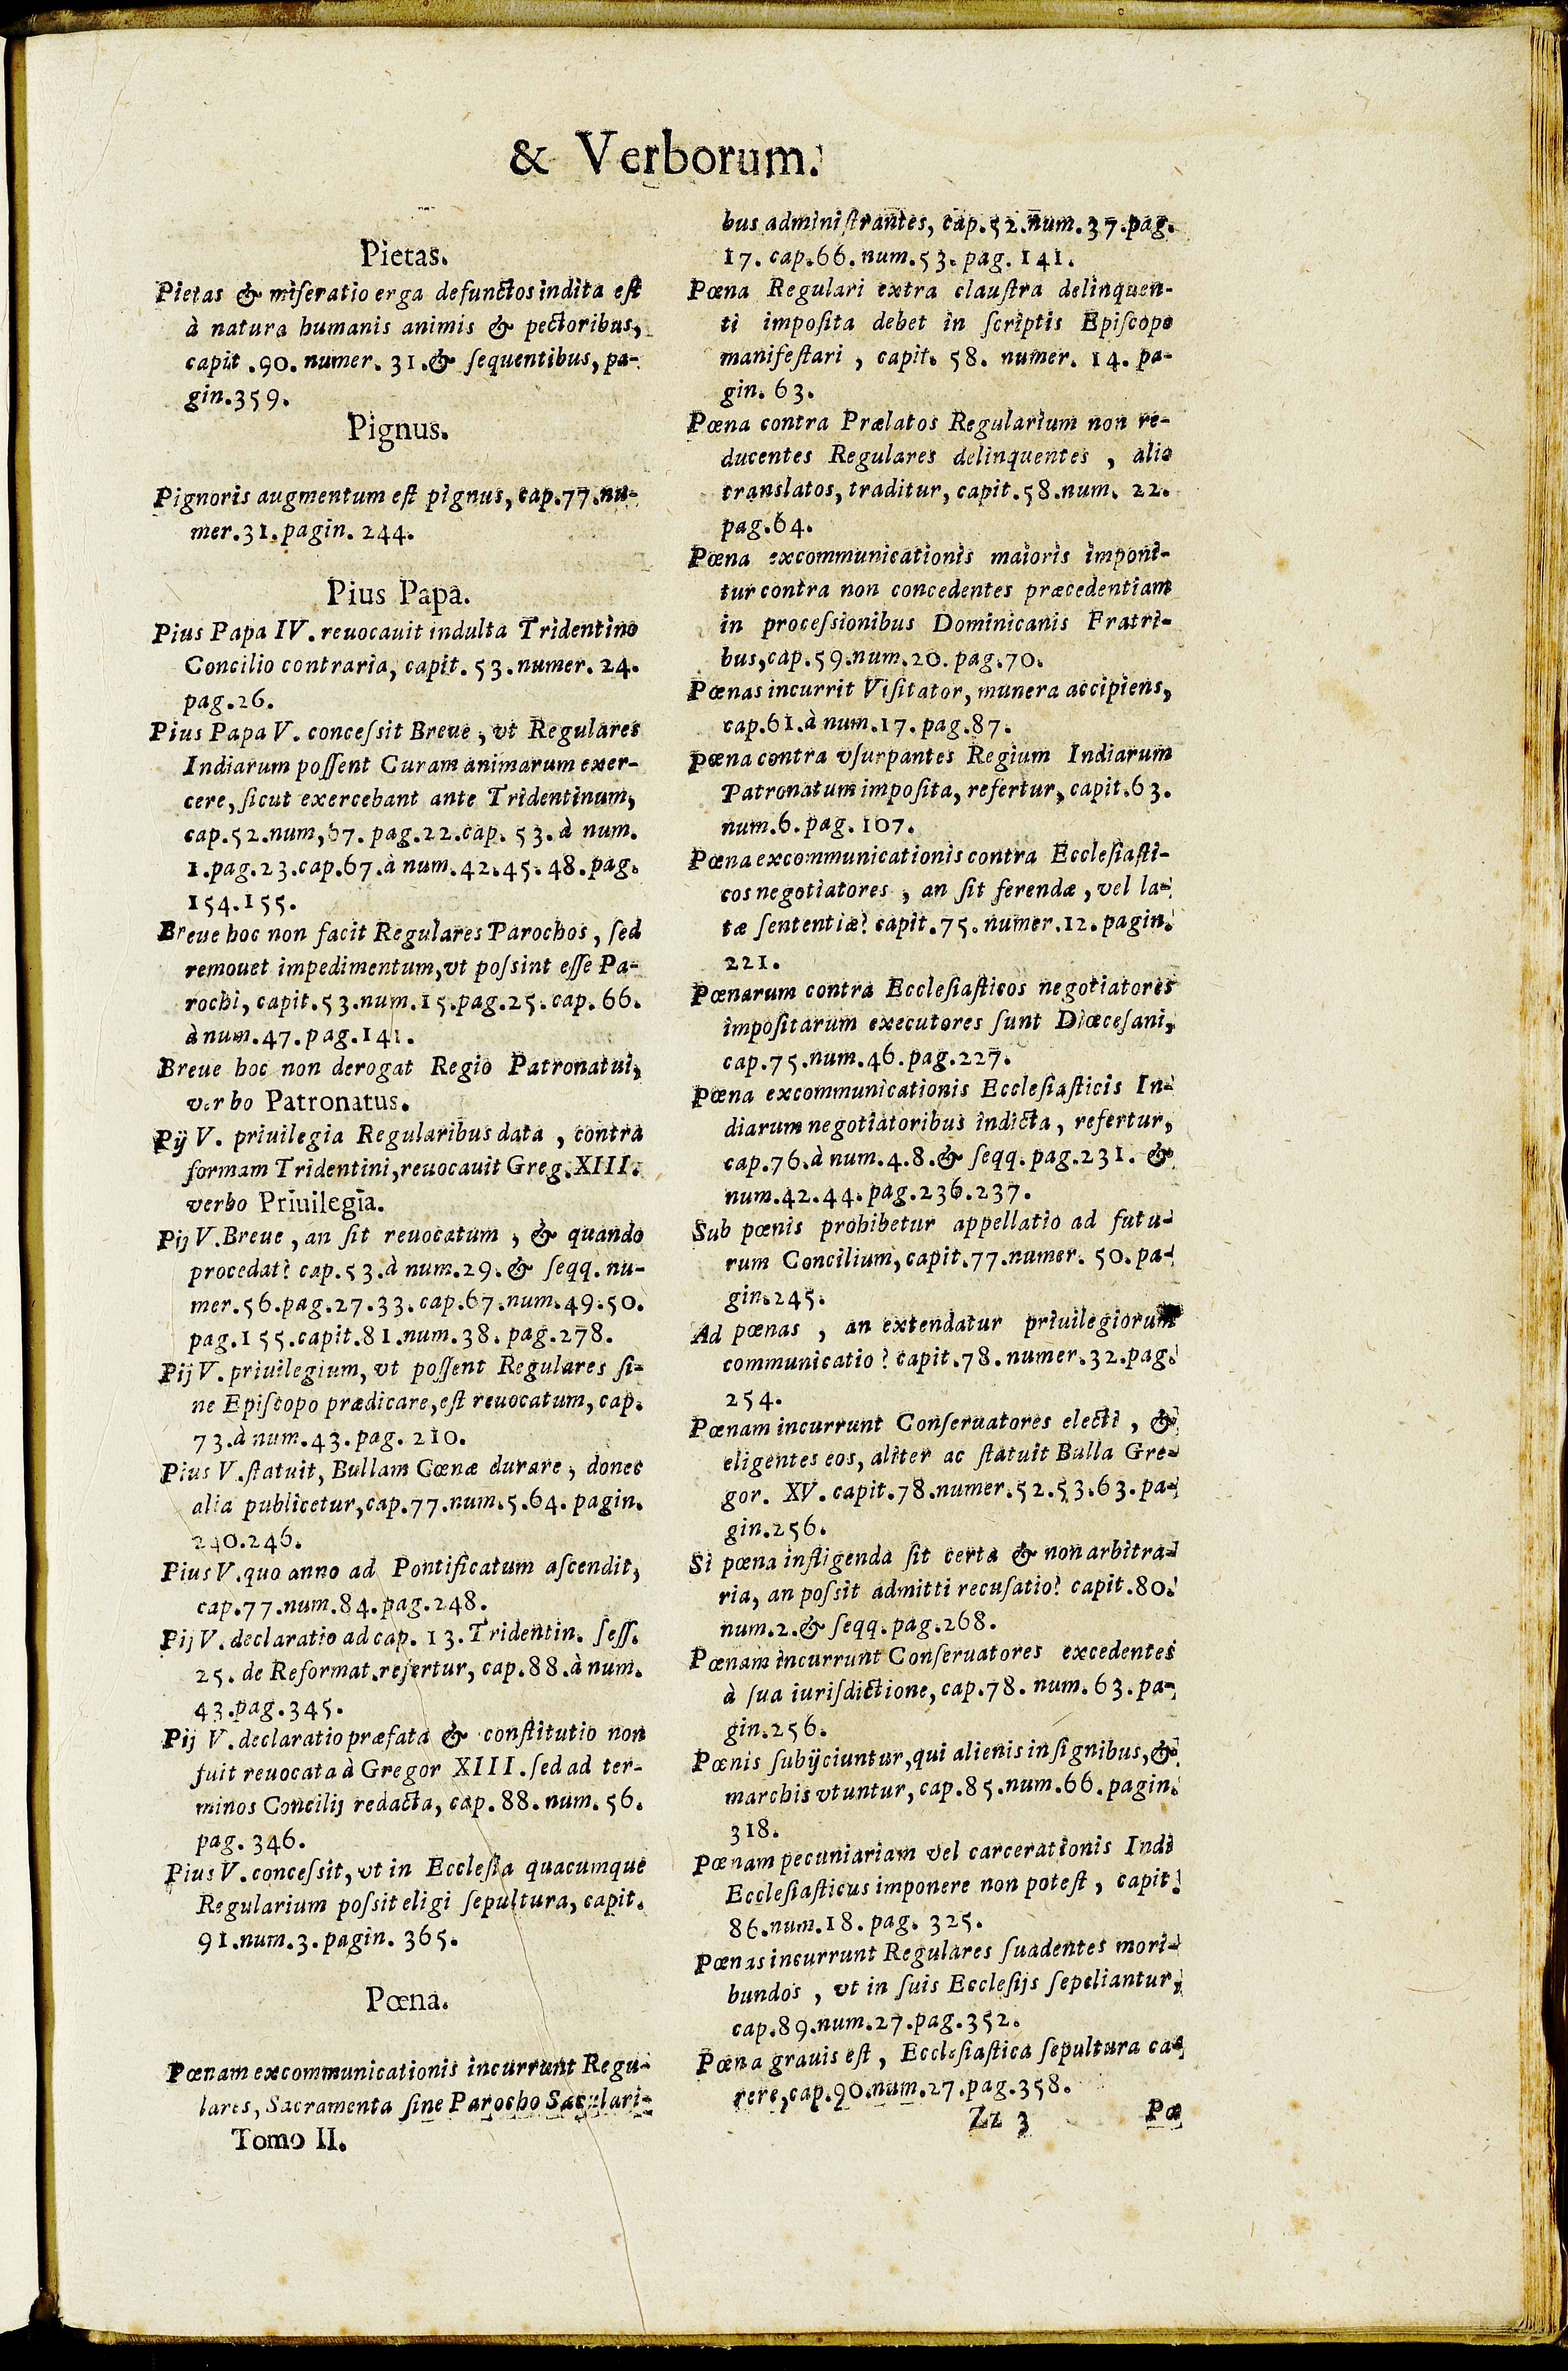 & Verborum.
Pietas.
Pietas & miſeratio erga defunctos indita eſt
à natura humanis animis & pectoribus,
capit .90. numer. 31.& ſequentibus, pa-
gin.359.
Pignus.
Pignoris augmentum eſt pignus, cap.77.nu-
mer.31.pagin. 244.
Pius Papa.
Pius Papa IV. reuocauit indulta Tridentino
Concilio contraria, capit. 53.numer. 24.
pag.26.
Pius Papa V. conceſsit Breue, vt Regulares
Indiarum poſſent Curam animarum exer-
cere, ſicut exercebant ante Tridentinum,
cap.52.num,67. pag.22.cap. 53. à num.
1.pag.23.cap.67.à num.42.45.48.pag.
154.155.
Breue hoc non facit Regulares Parochos, ſed
remouet impedimentum,vt poſsint eſſe Pa-
rochi, capit.53.num.15.pag.25.cap. 66.
à num.47.pag.141.
Breue hoc non derogat Regio Patronatui,
verbo Patronatus.
Pij V. priuilegia Regularibus data , contra
formam Tridentini,reuocauit Greg.XIII.
verbo Priuilegia.
Pij V.Breue, an ſit reuocatum , & quando
procedat? cap.53.à num.29.& ſeqq. nu-
mer.56.pag.27.33.cap.67.num.49.50.
pag.155.capit.81.num.38.pag.278.
Pij V. priuilegium, vt poſſent Regulares ſi-
ne Epiſcopo prædicare,eſt reuocatum, cap.
73.à num.43.pag. 210.
Pius V.ſtatuit, Bullam Cœnæ durare, donec
alia publicetur,cap.77.num.5.64. pagin.
240.246.
Pius V.quo anno ad Pontificatum aſcendit,
cap.77.num.84.pag.248.
Pij V. declaratio ad cap. 13.Tridentin. ſeſſ.
25. de Reformat.refertur, cap.88.à num.
43.pag.345.
Pij V. declaratio præfata & conſtitutio non
fuit reuocata à Gregor XIII. ſed ad ter-
minos Concilij redacta, cap. 88. num. 56.
pag. 346.
Pius V. conceſsit, vt in Eccleſia quacumque
Regularium poſsit eligi ſepultura, capit.
91.num.3.pagin. 365.
Pœna.
Pœnam excommunicationis incurrunt Regu-
lares, Sacramenta ſine Parocho Sæculari-
Tomo II.
bus adminiſtrantes, cap.52.num.37.pag.
17. cap.66.num.53.pag. 141.
Pœna Regulari extra clauſtra delinquen-
ti impoſita debet in ſcriptis Epiſcopo
manifeſtari , capit. 58. numer. 14. pa-
gin. 63.
Pœna contra Prælatos Regularium non re-
ducentes Regulares delinquentes , alio
translatos, traditur, capit.58.num. 22.
pag.64.
Pœna excommunicationis maioris imponi-
tur contra non concedentes præcedentiam
in proceſsionibus Dominicanis Fratri-
bus,cap.59.num.20.pag.70.
Pœnas incurrit Viſitator, munera accipiens,
cap.61.à num.17.pag.87.
Pœna contra vſurpantes Regium Indiarum
Patronatum impoſita, refertur, capit.63.
num.6.pag.107.
Pœna excommunicationis contra Eccleſiaſti-
cos negotiatores , an ſit ferendæ, vel la-
tæ ſententiæ? capit.75.numer.12.pagin.
221.
Pœnarum contra Eccleſiaſticos negotiatores
impoſitarum executores ſunt Diœceſani,
cap.75.num.46.pag.227.
Pœna excommunicationis Eccleſiaſticis In-
diarum negotiatoribus indicta, refertur,
cap.76.à num.4.8.& ſeqq.pag.231. &
num.42.44.pag.236.237.
Sub pœnis prohibetur appellatio ad futu-
rum Concilium, capit.77.numer. 50.pa-
gin.245.
Ad pœnas , an extendatur priuilegiorum
communicatio? capit.78.numer.32.pag.
254.
Pœnam incurrunt Conſeruatores electi , &
eligentes eos, aliter ac ſtatuit Bulla Gre-
gor. XV. capit.78.numer.52.53.63.pa-
gin.256.
Si pœna infligenda ſit certa & non arbitra-
ria, an poſsit admitti recuſatio? capit.80.
num.2.& ſeqq.pag.268.
Pœnam incurrunt Conſeruatores excedentes
à ſua iuriſdictione, cap.78. num.63.pa-
gin.256.
Pœnis ſubijciuntur,qui alienis inſignibus,&
marchis vtuntur, cap.85.num.66.pagin.
318.
Pœnam pecuniariam vel carcerationis Indi
Eccleſiaſticus imponere non poteſt, capit.
86.num.18.pag. 325.
Pœnas incurrunt Regulares ſuadentes mori-
bundos , vt in ſuis Eccleſijs ſepeliantur,
cap.89.num.27.pag.352.
Pœna grauis eſt, Eccleſiaſtica ſepultura ca-
rere,cap.90.num.27.pag.358.
Zz 3
Pœ